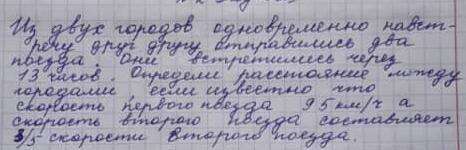 Из двух городов одновременно навст-
речу друг другу отправились два
поезда. Они встретились через
13 часов. Определи расстояние между
городами, если известно что
скорость первого поезда 95 км/ч а
скорость второго поезда составляет
3/5 скорости второго поезда.